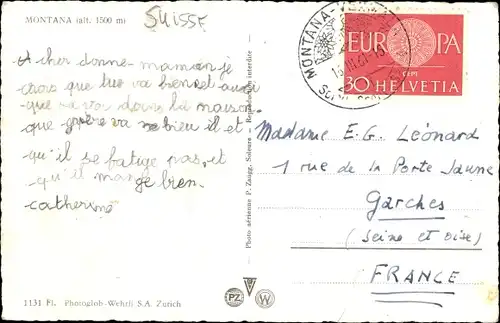 MONTANA (alt. 1500 m)
SUISSE
A cher donne-maman je
crois que tu va bien et aussi
que ça va dans la maison
que père va bien il et
qu'il se fatige pas et
qu'il mange bien
catherine
1131 Fl. Photoglob-Wehrli S.A. Zurich
Photo aérienne P. Zaugg, Soleure - Reproduction interdite
PZ
W
MONTANA-VERMALA
EUROPA
CEPT
30 HELVETIA
Madame E.G. Léonard
1 rue de la Porte Jaune
Garches
(Seine et Oise)
FRANCE